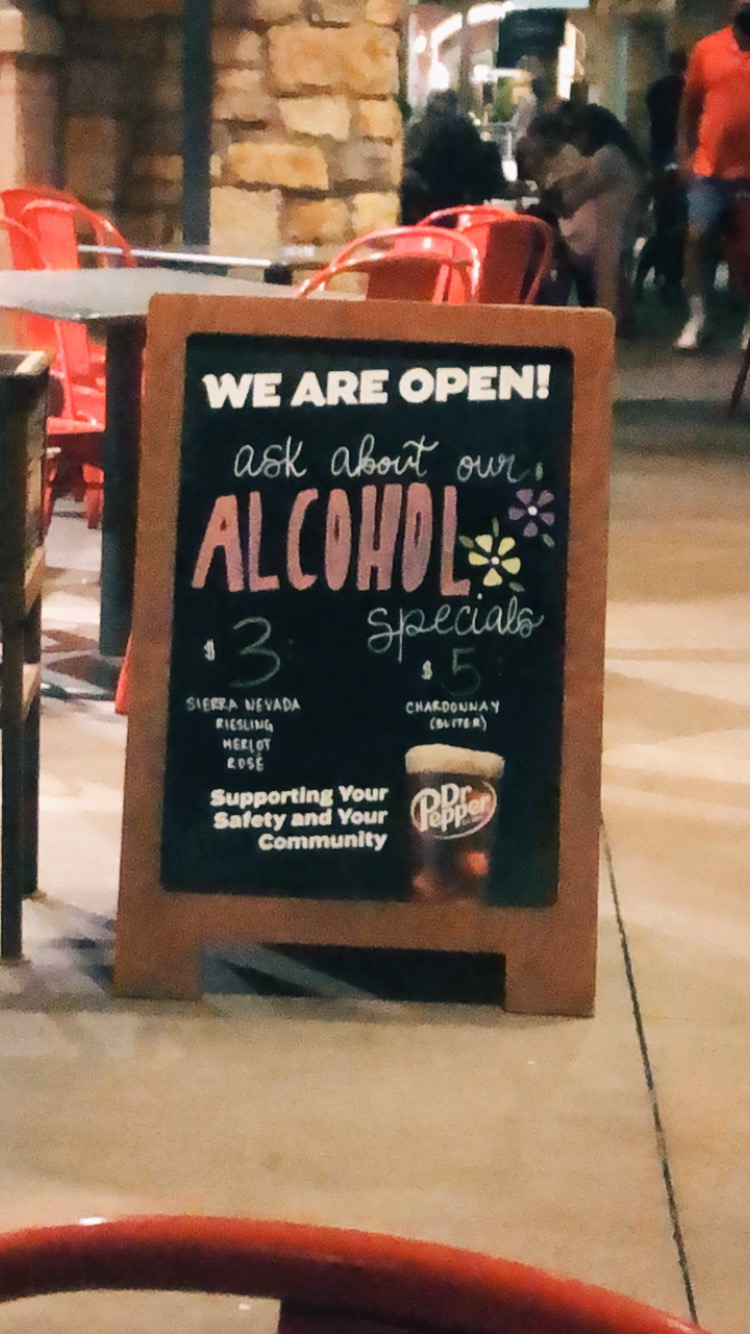 WE ARE OPEN!
ask about our
ALCOHOL
specials
$3
SIERRA NEVADA
RIESLING
MERLOT
ROSÉ
$5
CHARDONNAY
(BUTTER)
Supporting Your
Safety and Your
Community
Dr
Pepper